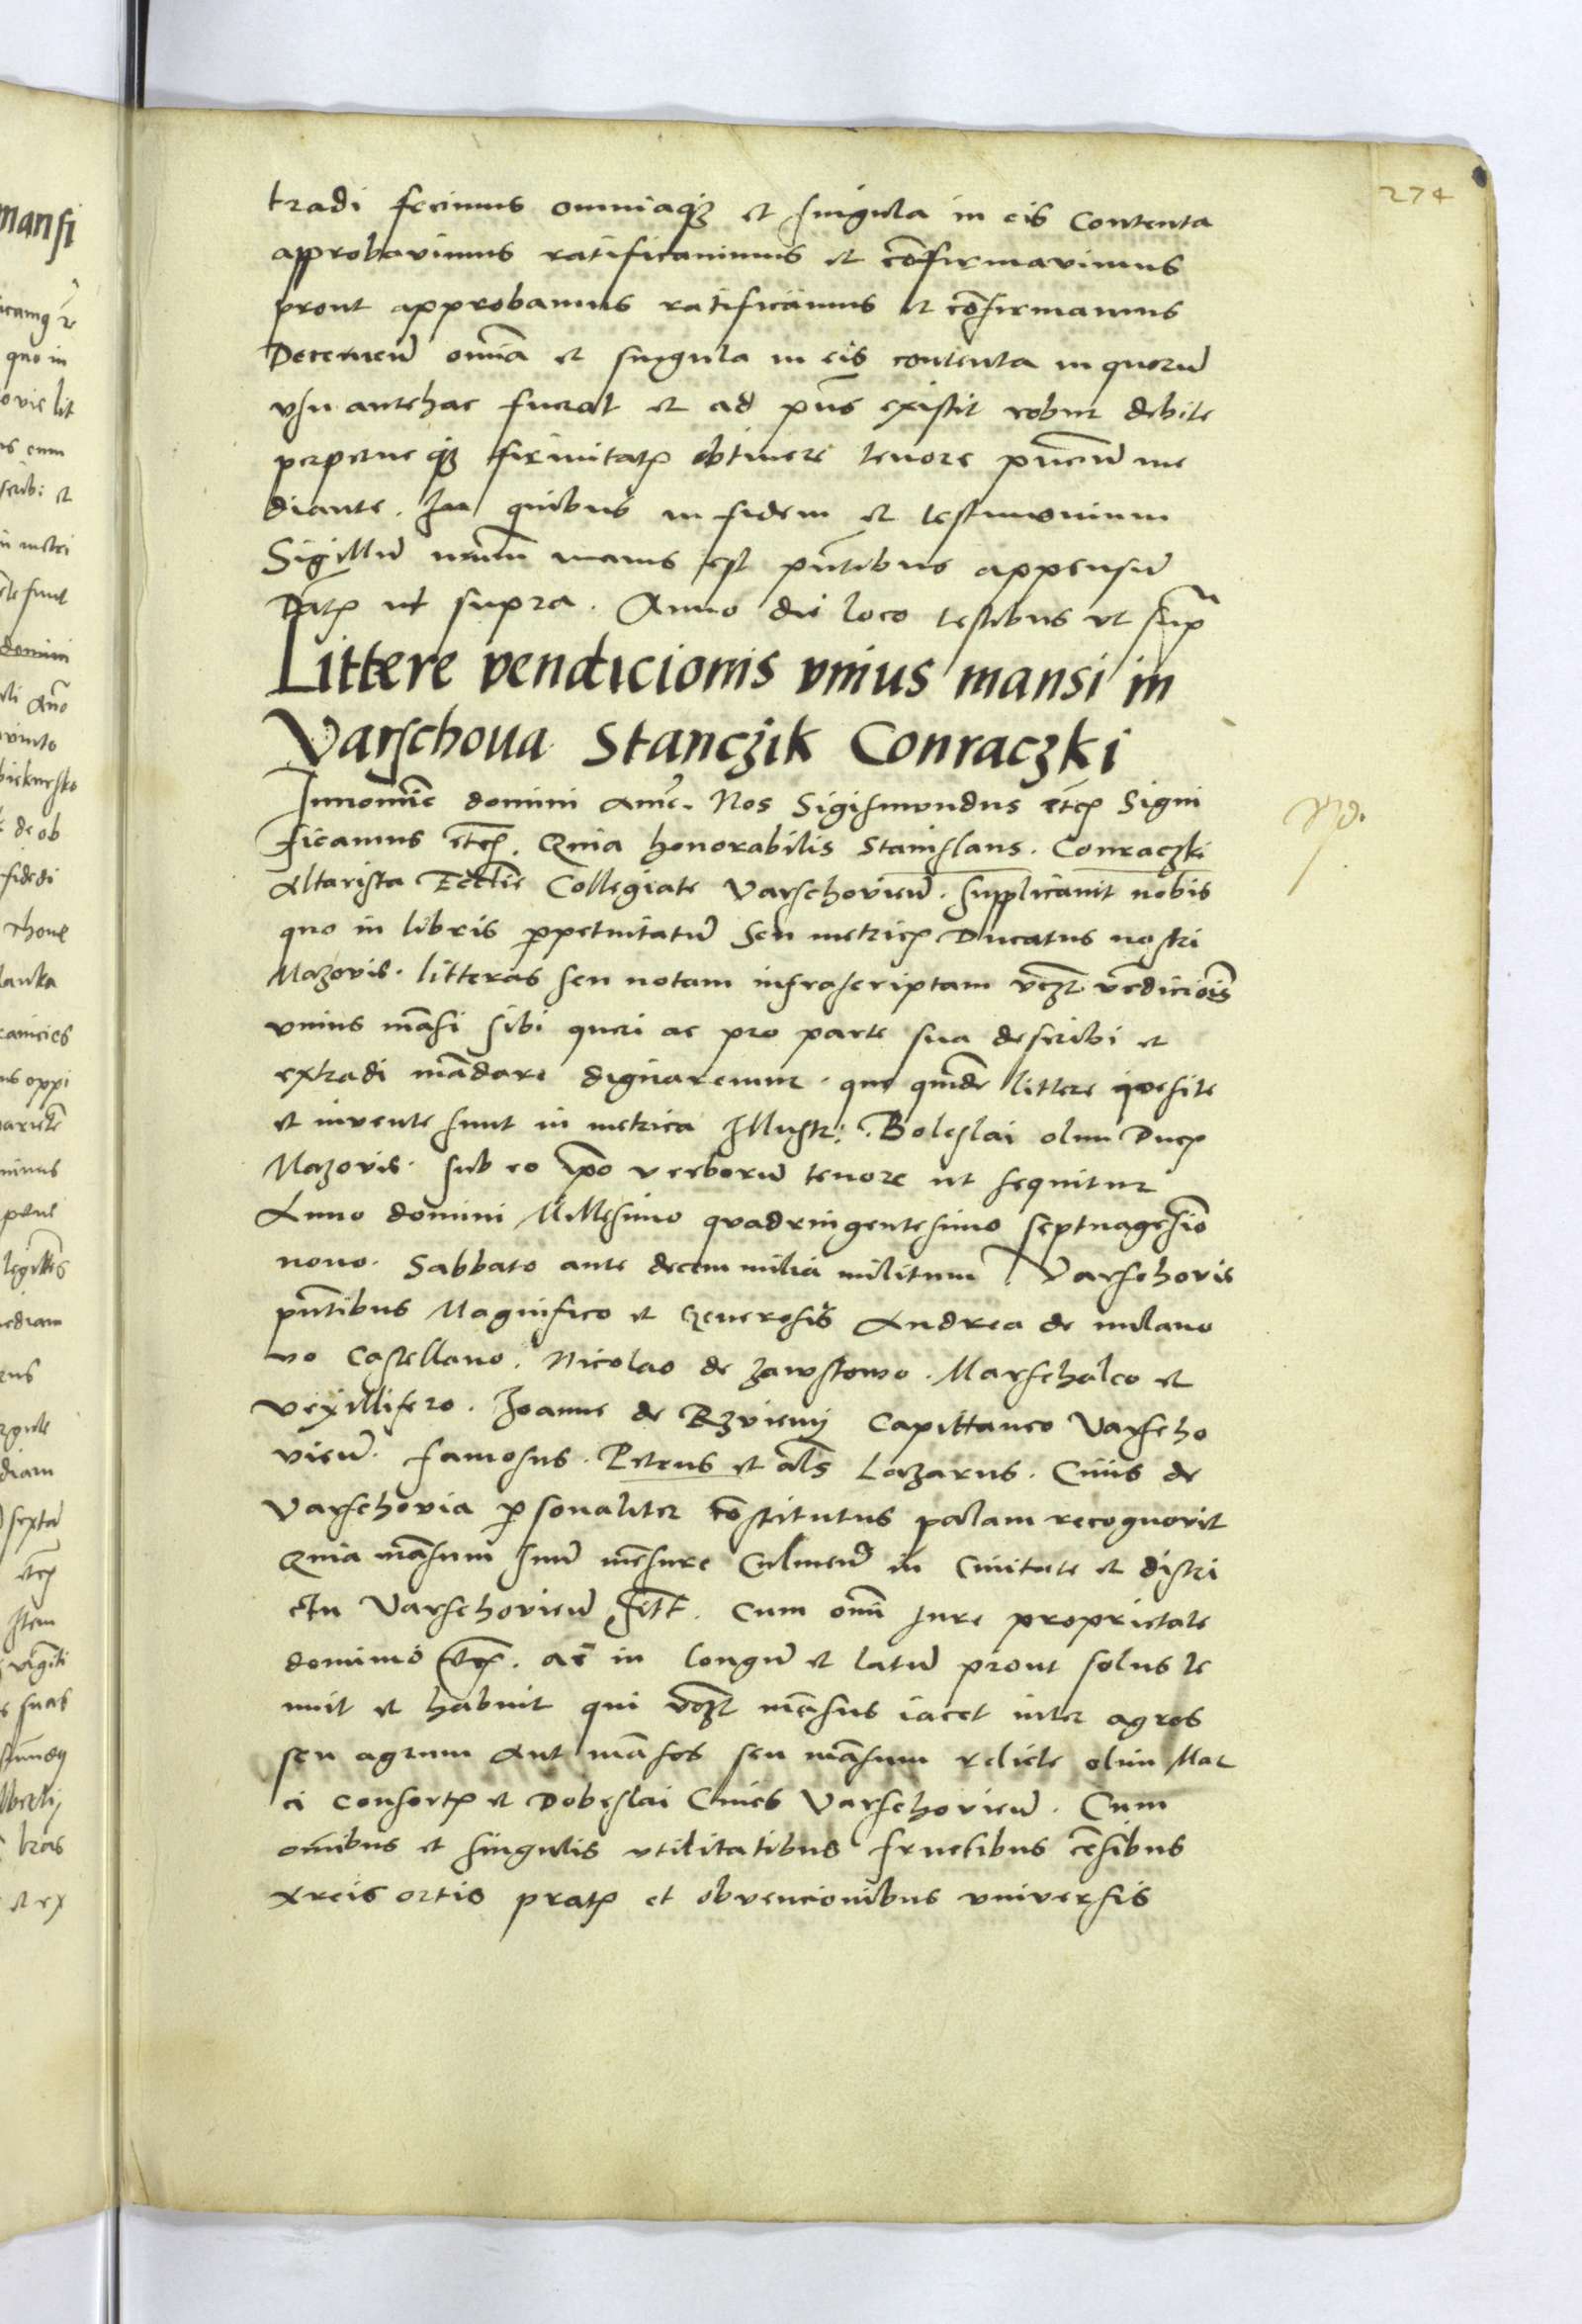 274
tradi fecimus omniaqz et singula in eis Contenta
approbavimus ratificavimus et cōfirmavimus
prout approbamus ratificamus et cōfirmamus
Decernen̄ om̄ia et singula in eis contenta in quorū
vsu antehac fuerat et ad pn̄s existit robur debite
perpetue qz firmitatis obtinere tenore pn̄ciū me
diante. In quibus in fidem et testimonium
Sigillū nr̄um maius est pn̄tibus appensū
Datꝭ ut supra. Anno die loco testibus vt sup̄
Littere vendicionis vnius mansi in
Varschoua Stanczik Conraczki
Innomīe domini Amē. Nos Sigismundus etcꝭ Signi
ficamus etcꝭ. Quia honorabilis Stanislaus. Conraczki
Altarista Eccl̄ie Collegiate Varschovien̄. supplicauit nobis
quo in libris ꝑpetuitatū Seu metricꝭ Ducatus nostri
Mazovie. litteras seu notam infrascriptam vcz̄t vēdiciōis
vnius māsi sibi queri ac pro parte sua describi et
extradi mādare dignaremur. que quidē littere qvesite
et invente sunt in metrica Illustr: Boleslai olim Ducꝭ
Mazovie. sub eo ip̄o verborū tenore ut sequitur
Anno domini Millesimo quadringentesimo septuagesīo
nono. Sabbato ante decem milia militum. Varschovie
pn̄tibus Magnifico et Generosis Andrea de milano
vo Castellano. Nicolao de Zawstowo. Marschalco et
Vexillifero. Joanne de Rzvieny Capittaneo Varscho
vien̄. famosus. Petrus et al̄s Lazarus. Civis de
Varschovia ꝑsonaliter cōstitutus palam recognovit
Quia māsum suū mēsure Culmen̄ in Civitate et distri
ctu Varschovien̄ sitū. Cum om̄i Jure proprietate
dominio etcꝭ. ac in longū et latū prout solus te
nuit et habuit qui vcz̄t māsus iacet inter agros
seu agrum aut māsos seu māsum relicte olim Mar
ci Consortꝭ et Dobeslai Civis Varschovien̄. Cum
om̄ibus et singulis vtilitatibus fructibus cēsibus
areis ortis pratꝭ et obvencionibus vniversis